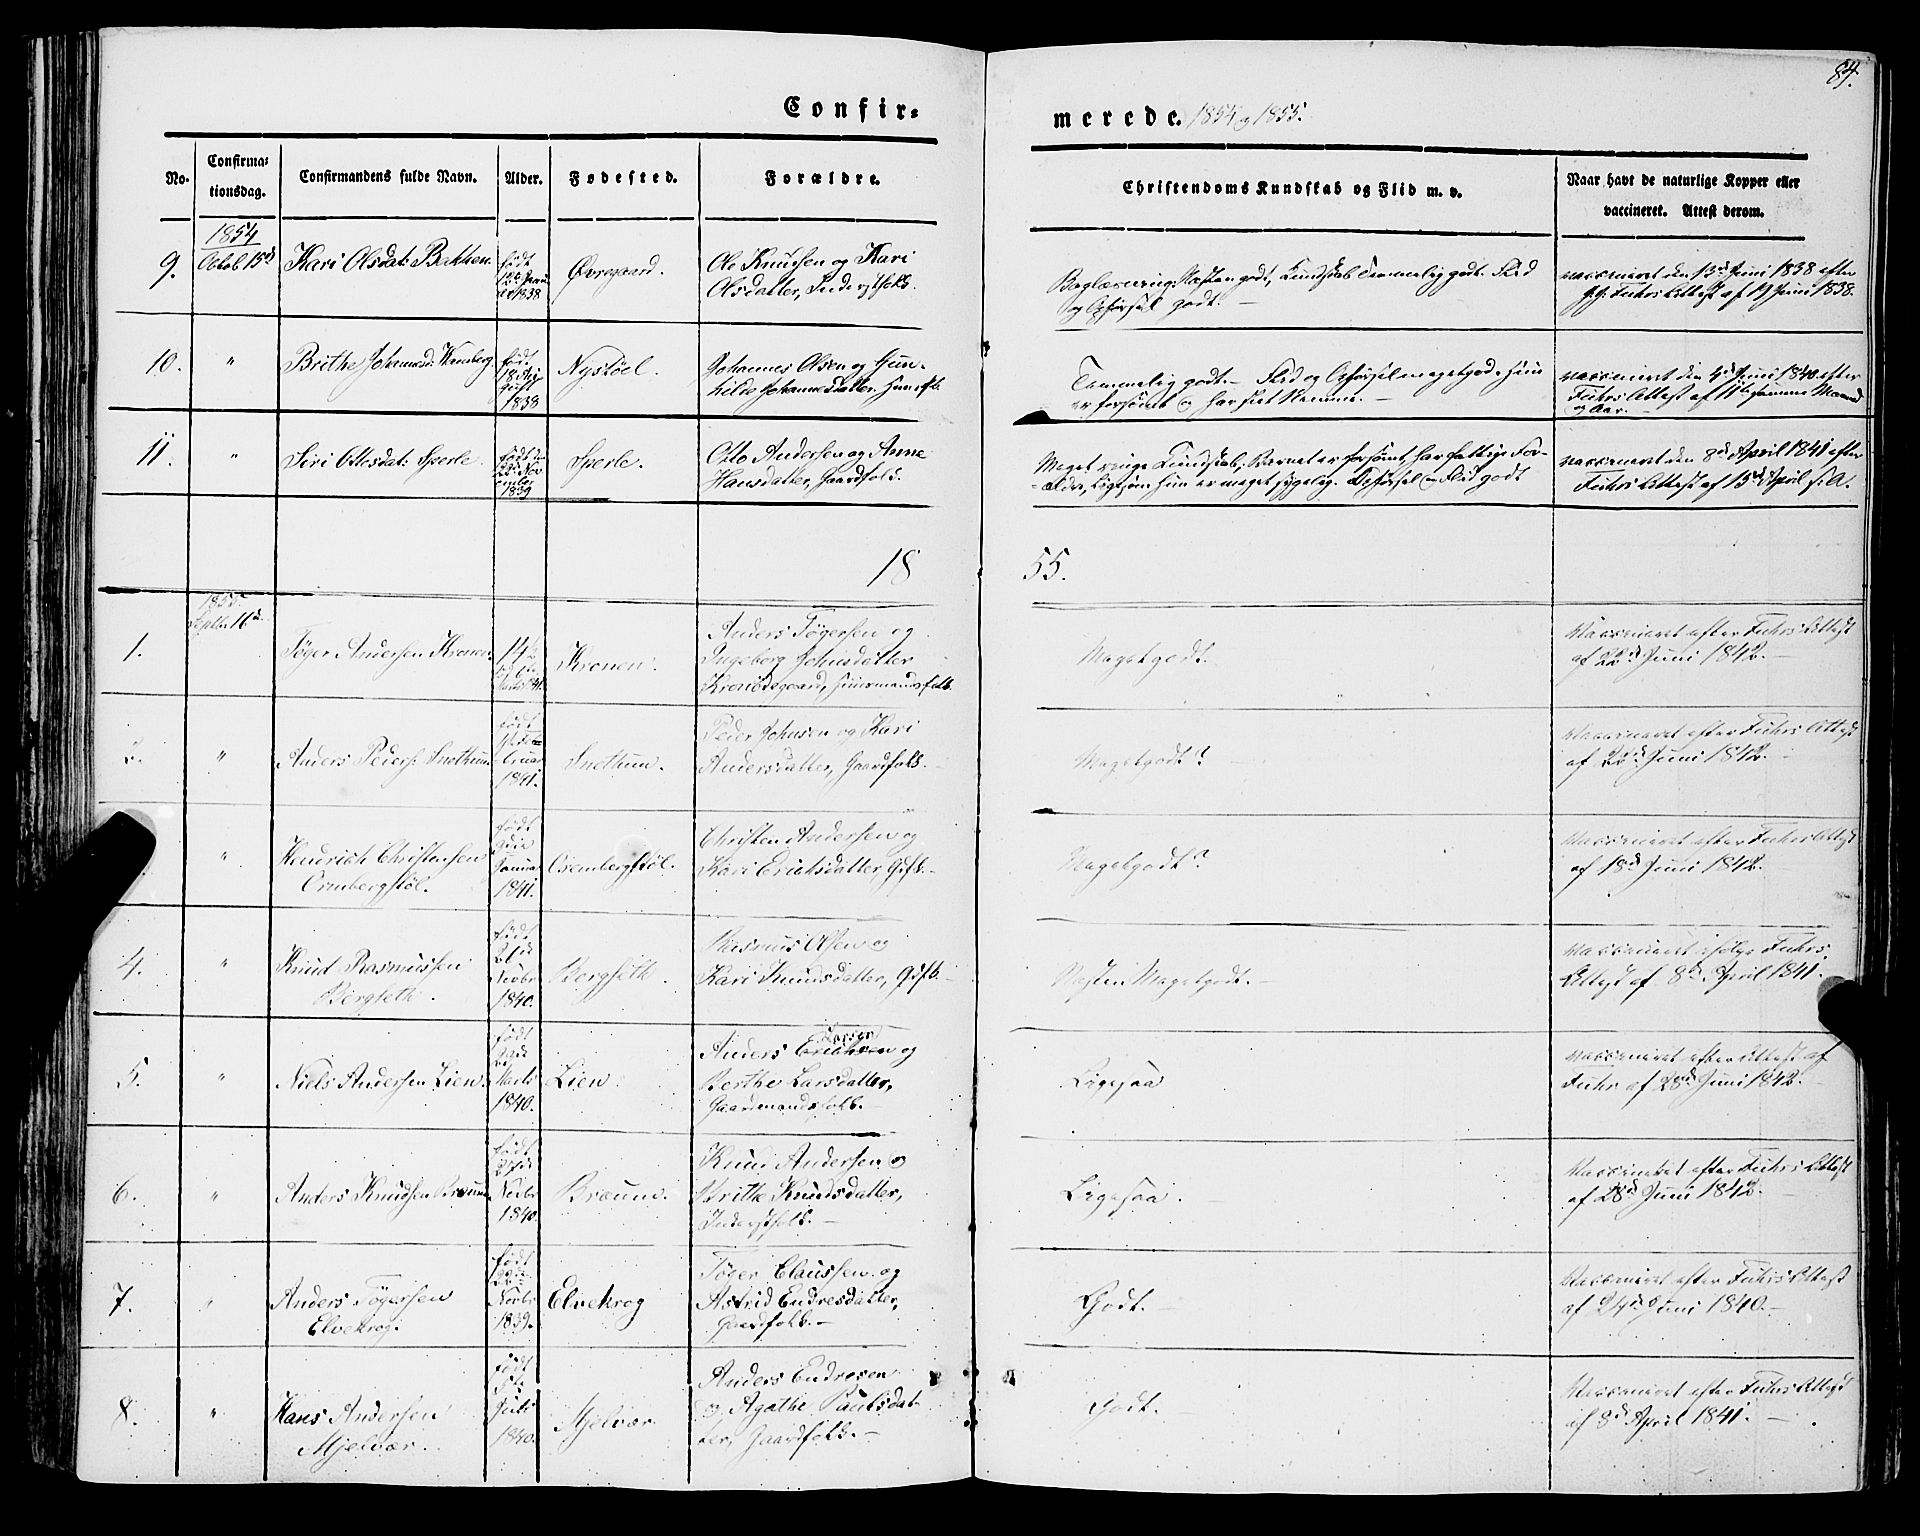 84.
Confir-
merede. 1854 og 1855.
No.
Confirma-
tionsdag.
Confirmandens fulde Navn.
Alder.
Fødested.
Forældre.
Christendoms Kundskab og Flid m. v.
Naar havt de naturlige Kopper eller
vaccineret. Attest derom.
1854
9.
Octob 15d
Kari Olsdat: Bakken
født
1838
Øvregaard.
Ole Knutsen og Kari
Olsdatter, Inderstfolk.
Næsten godt, Kundskab Temmelig godt. Flid
og Opførsel godt. —
vaccineret den 13d Juni 1838 efter
Fuhrs Attest af 19 Juni 1838.
10.
"
Brithe Johannesd:
født
18 Au
gust
1838
Nystöel.
Johannes Olsen og Gun-
hilde Johannesdatter
Temmelig godt. — Flid og Opførsel meget god. hun
er forsömt og har slet Nemme. —
vaccineret den 4d Juni 1840 efter
Fuhrs Attest af 11te samme Maaned
og Aar. —
11.
"
Siri Ottesdat: Sperle.
født
Nov
ember
1839
Sperle.
Otto Andersen og Anne
Hansdatter, Gaardfolk.
Meget ringe Kundskab; Barnet er forsömt, har fattige For-
ældre, ligesom hun er meget sygelig. Opførsel og Flid godt
vaccineret den 8d April 1841 efter
Fuhrs Attest af 15d April s. A.
18
55.
1855.
Septbr 16d.
1.
Töger Andersen Kronen.
14½
Kronen.
Anders Tögersen og
Ingeborg Johnsdatter
Kronödegaard, Huusmandsfolk.
Meget godt.
Vaccineret efter Fuhrs Attest
af 22d Juni 1842. —
2.
"
Anders Peders: Snethun.
født
Feb
ruar
1841.
Snethun.
Peder Johnsen og Kari
Andersdatter, Gaardfolk. —
Meget godt?
Vaccineret efter Fuhrs Attest
af 22d Juni 1842. —
"
Hendrich Christensen
Ormbergstöl.
født
Januar
1841.
Ormbergstöl.
Christen Andersen og
Kari Erichsdatter, Gifte —
Meget godt?
Vaccineret efter Fuhrs Attest
af 18d Juni 1842. —
4.
"
Knud Rasmussen
Bergseth.
født
21de
Novbr
1840.
Bergseth
Rasmus Olsen og
Kari Knudsdatter, Gifte —
Næsten Meget godt. —
Vaccineret ifølge Fuhrs
Attest af 8d April 1841. —
5.
"
Niels Andersen Lien.
født
Marts
1840.
Lien
Larsen
Anders Erichsen og
Berthe Larsdatter,
Gaardmandsfolk. —
Ligesaa
vaccineret efter Attest af
Fuhr af 28d Juni 1842. —
6.
"
Anders Knudsen Bræum
født
27de
Novbr
1840.
Bræum.
Knud Andersen og
Brithe Knudsdatter,
Inderstfolk. —
Ligesaa. —
Vaccineret efter Fuhrs Attest
af 28d Juni 1842. —
7.
"
Anders Tögersen
Elvekrog.
født
22de
Novbr
1839.
Elvekrog
Töger Claussen og
Astrid Endresdatter,
Gaardfolk. —
Godt. —
Vaccineret efter Fuhrs Attest
af 24d Juni 1840. —
8.
"
Hans Andersen
Mjelvær.
født
Juli
1840.
Mjelvær
Anders Endresen
og Agathe Paulsdat-
ter, Gaardfolk. —
Godt. —
Vaccineret efter Fuhrs Attest
af 8d April 1841. —